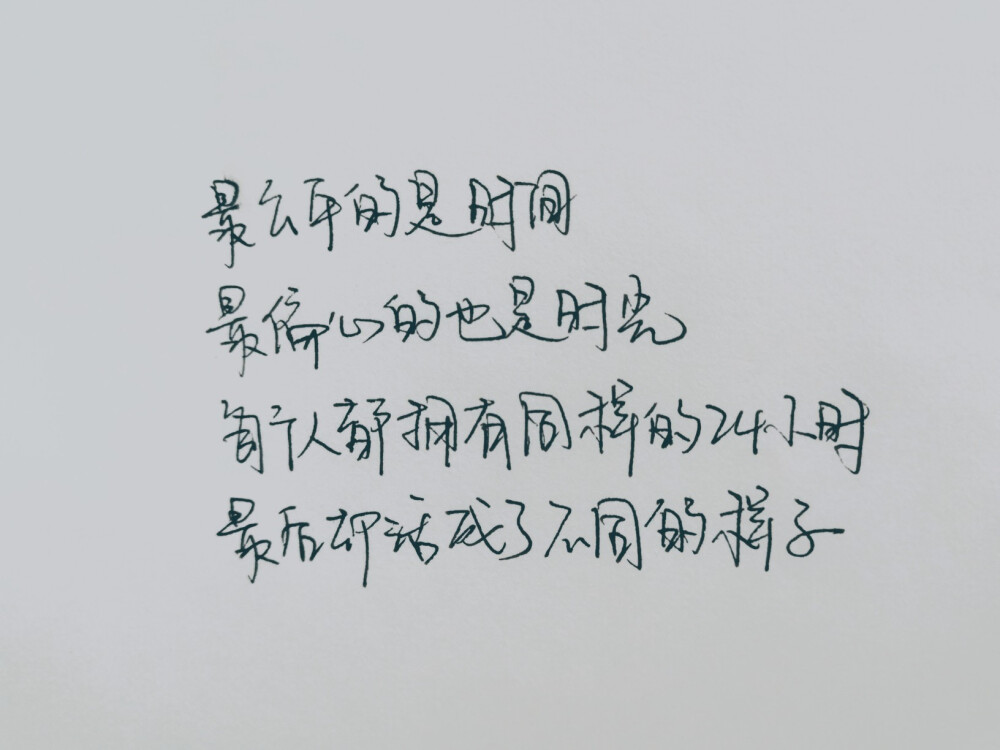 最公平的是时间
最偏心的也是时光
每个人都拥有同样的24小时
最后却活成了不同的样子